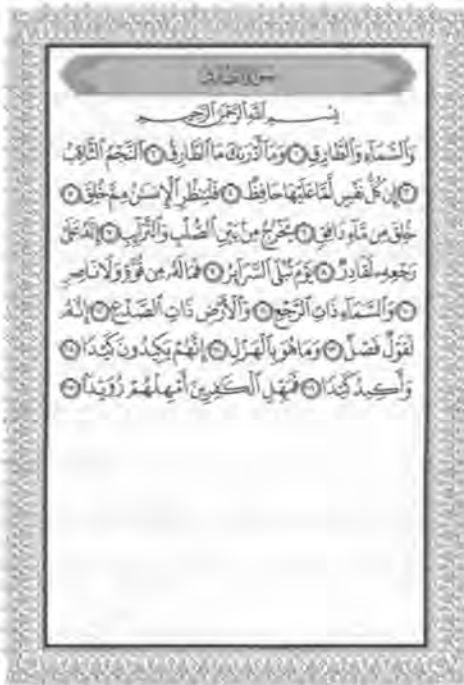 سورة الطارق
بسم الله الرحمن الرحيم
وَالسَّمَاءِ وَالطَّارِقِ ۝ وَمَا أَدْرَىٰكَ مَا الطَّارِقُ ۝ النَّجْمُ الثَّاقِبُ
۝ إِن كُلُّ نَفْسٍ لَّمَّا عَلَيْهَا حَافِظٌ ۝ فَلْيَنظُرِ الْإِنسَٰنُ مِمَّ خُلِقَ ۝
خُلِقَ مِن مَّاءٍ دَافِقٍ ۝ يَخْرُجُ مِنۢ بَيْنِ الصُّلْبِ وَالتَّرَائِبِ ۝ إِنَّهُ عَلَىٰ
رَجْعِهِ لَقَادِرٌ ۝ يَوْمَ تُبْلَى السَّرَائِرُ ۝ فَمَا لَهُ مِن قُوَّةٍ وَلَا نَاصِرٍ
۝ وَالسَّمَاءِ ذَاتِ الرَّجْعِ ۝ وَالْأَرْضِ ذَاتِ الصَّدْعِ ۝ إِنَّهُ
لَقَوْلٌ فَصْلٌ ۝ وَمَا هُوَ بِالْهَزْلِ ۝ إِنَّهُمْ يَكِيدُونَ كَيْدًا ۝
وَأَكِيدُ كَيْدًا ۝ فَمَهِّلِ الْكَٰفِرِينَ أَمْهِلْهُمْ رُوَيْدًا ۝